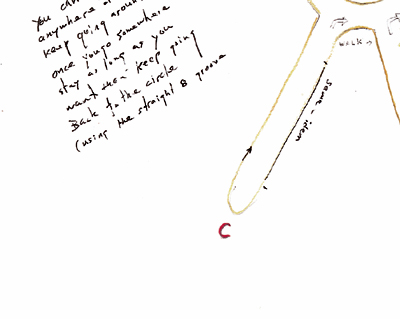 You can
anywhere a
keep going around
once you go somewhere
stay as long as you
want then keep going
Back to the circle
(using the straight & groove
WALK →
same - idem
C